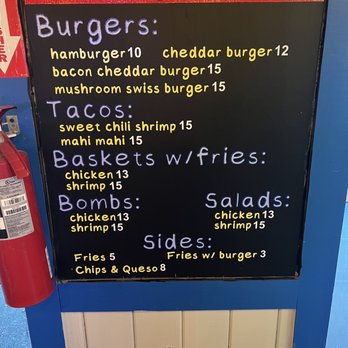 Burgers:
hamburger 10 cheddar burger 12
bacon cheddar burger 15
mushroom swiss burger 15
Tacos:
sweet chili shrimp 15
mahi mahi 15
Baskets w/fries:
chicken 13
shrimp 15
Bombs: Salads:
chicken 13 chicken 13
shrimp 15 shrimp 15
Sides:
Fries 5 Fries w/ burger 3
Chips & Queso 8